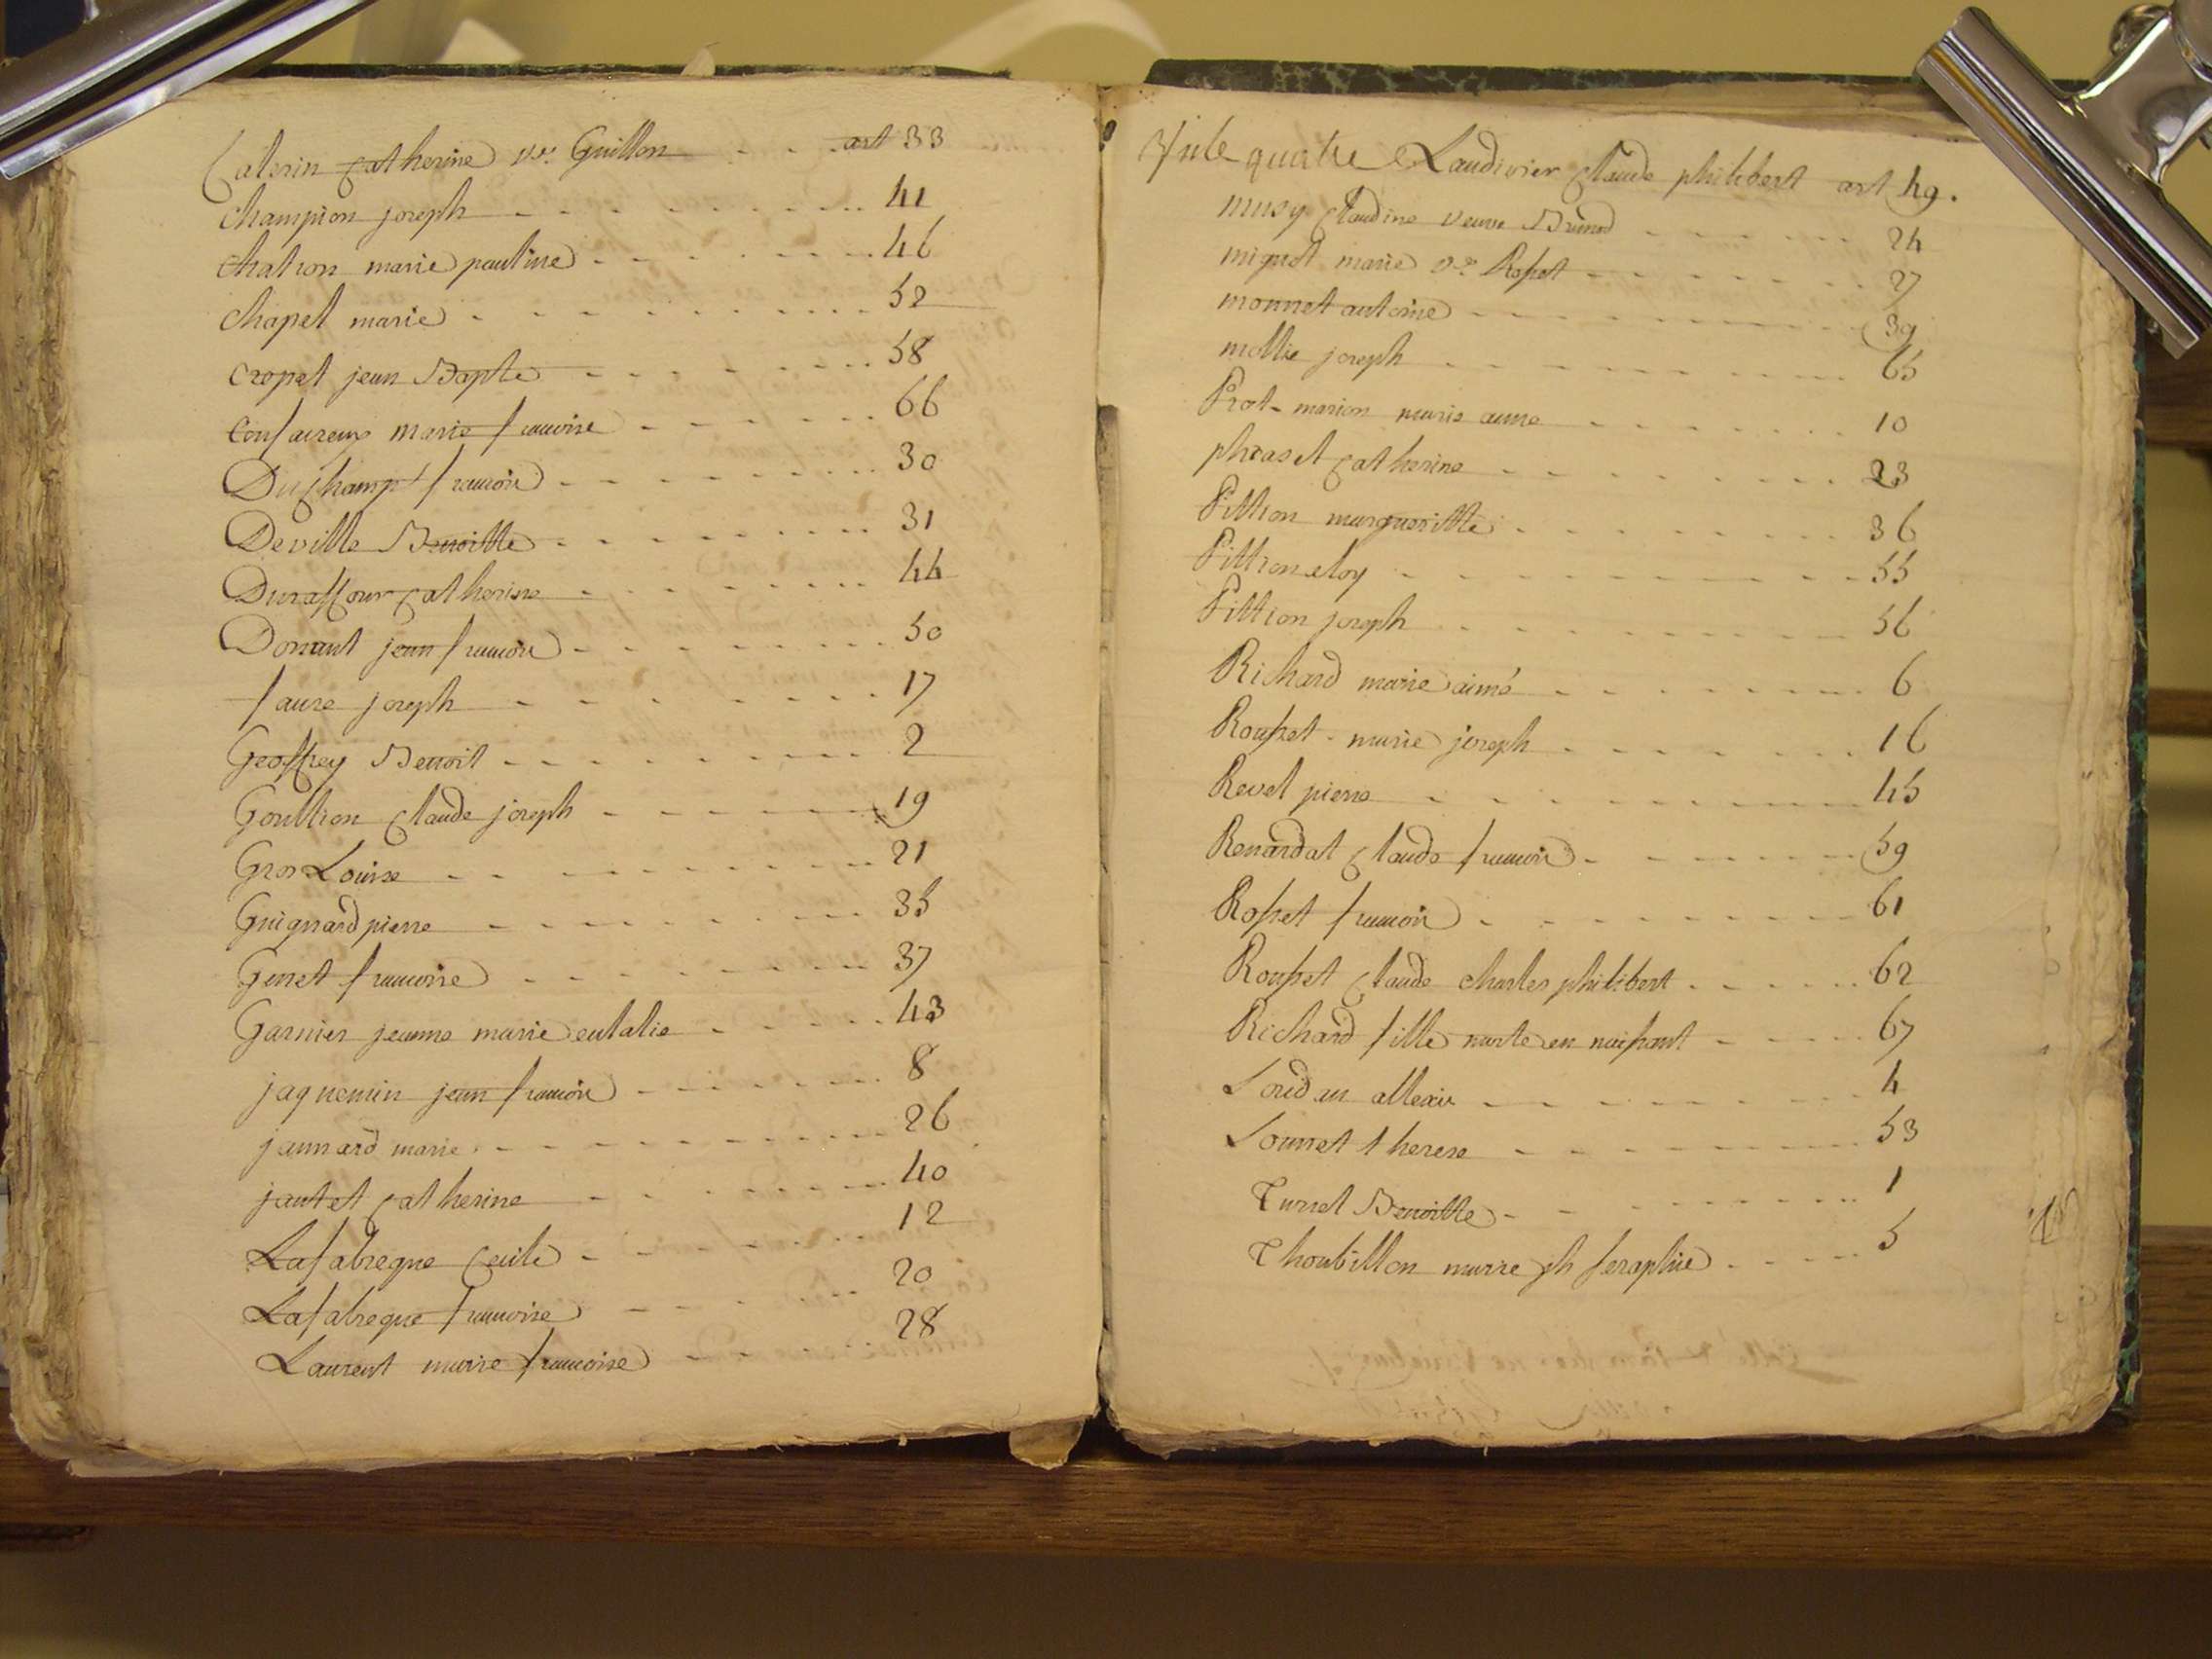 Caterin Catherine Ve. Guillon - - - art 33
Champion joseph - - - 41
Chatron marie pauline - - - 46
Chapel marie - - - 52
Cropet jean Bapte - - - 58
marie francoise - - - 66
Duchamp francois - - - 30
Deville Benoitte - - - 31
Duraffour Catherine - - - 44
Donant jean francois - - - 50
faure joseph - - - 17
Geoffrey Benoit - - - 2
Gouttion Claude joseph - - - 19
Gros Louise - - - 21
Guignard pierre - - - 35
Genet francoise - - - 37
Garnier jeanne marie eulalie - - - 43
jaquemin jean francois - - - 8
jannard marie - - - 26
jantet Catherine - - - 40
Lafabregue Cecile - - - 12
Lafabregue francoise - - - 20
Laurent marie francoise - - - 28
quatre Laudivier Claude philibert art 49.
musy Claudine veuve - - - 24
miguet marie Ve. Rosset - - - 27
monnet antoine - - - 39
mollie joseph - - - 65
Prat-marion marie anne - - - 10
phraset Catherine - - - 23
Pittion margueritte - - - 36
Pittion eloy - - - 55
Pittion joseph - - - 56
Richard marie aimé - - - 6
Rousset - marie joseph - - - 16
Revel pierre - - - 45
Renardat Claude francois - - - 59
Rosset francois - - - 61
Rousset Claude charles philibert - - - 62
Richard fille morte en naissant - - - 67
Soudan allexis - - - 4
Sonnet therese - - - 53
Turrel Benoitte - - - 1
Thoubillon marie jh seraphie - - - 5